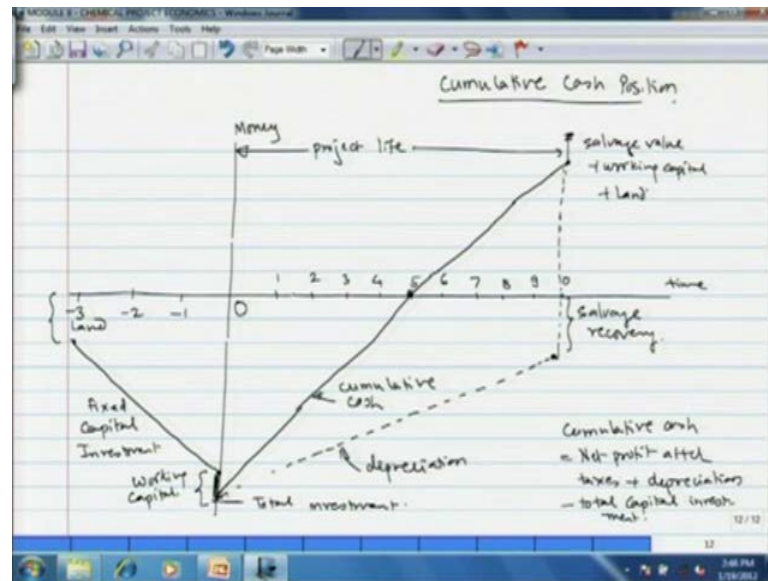 MODULE 8 - CHEMICAL PROJECT ECONOMICS - Windows Journal
File Edit View Insert Actions Tools Help
Page Width
Cumulative Cash Position
Money
project life
salvage value
+ working capital
+ Land
-3 -2 -1 0 1 2 3 4 5 6 7 8 9 10 time
Land
Salvage
recovery
Fixed
Capital
Investment
cumulative
cash
depreciation
Working
Capital
Total investment.
Cumulative cash
= Net profit after
taxes + depreciation
- total capital invest
ment.
12 / 12
12
3:48 PM
1/19/2012